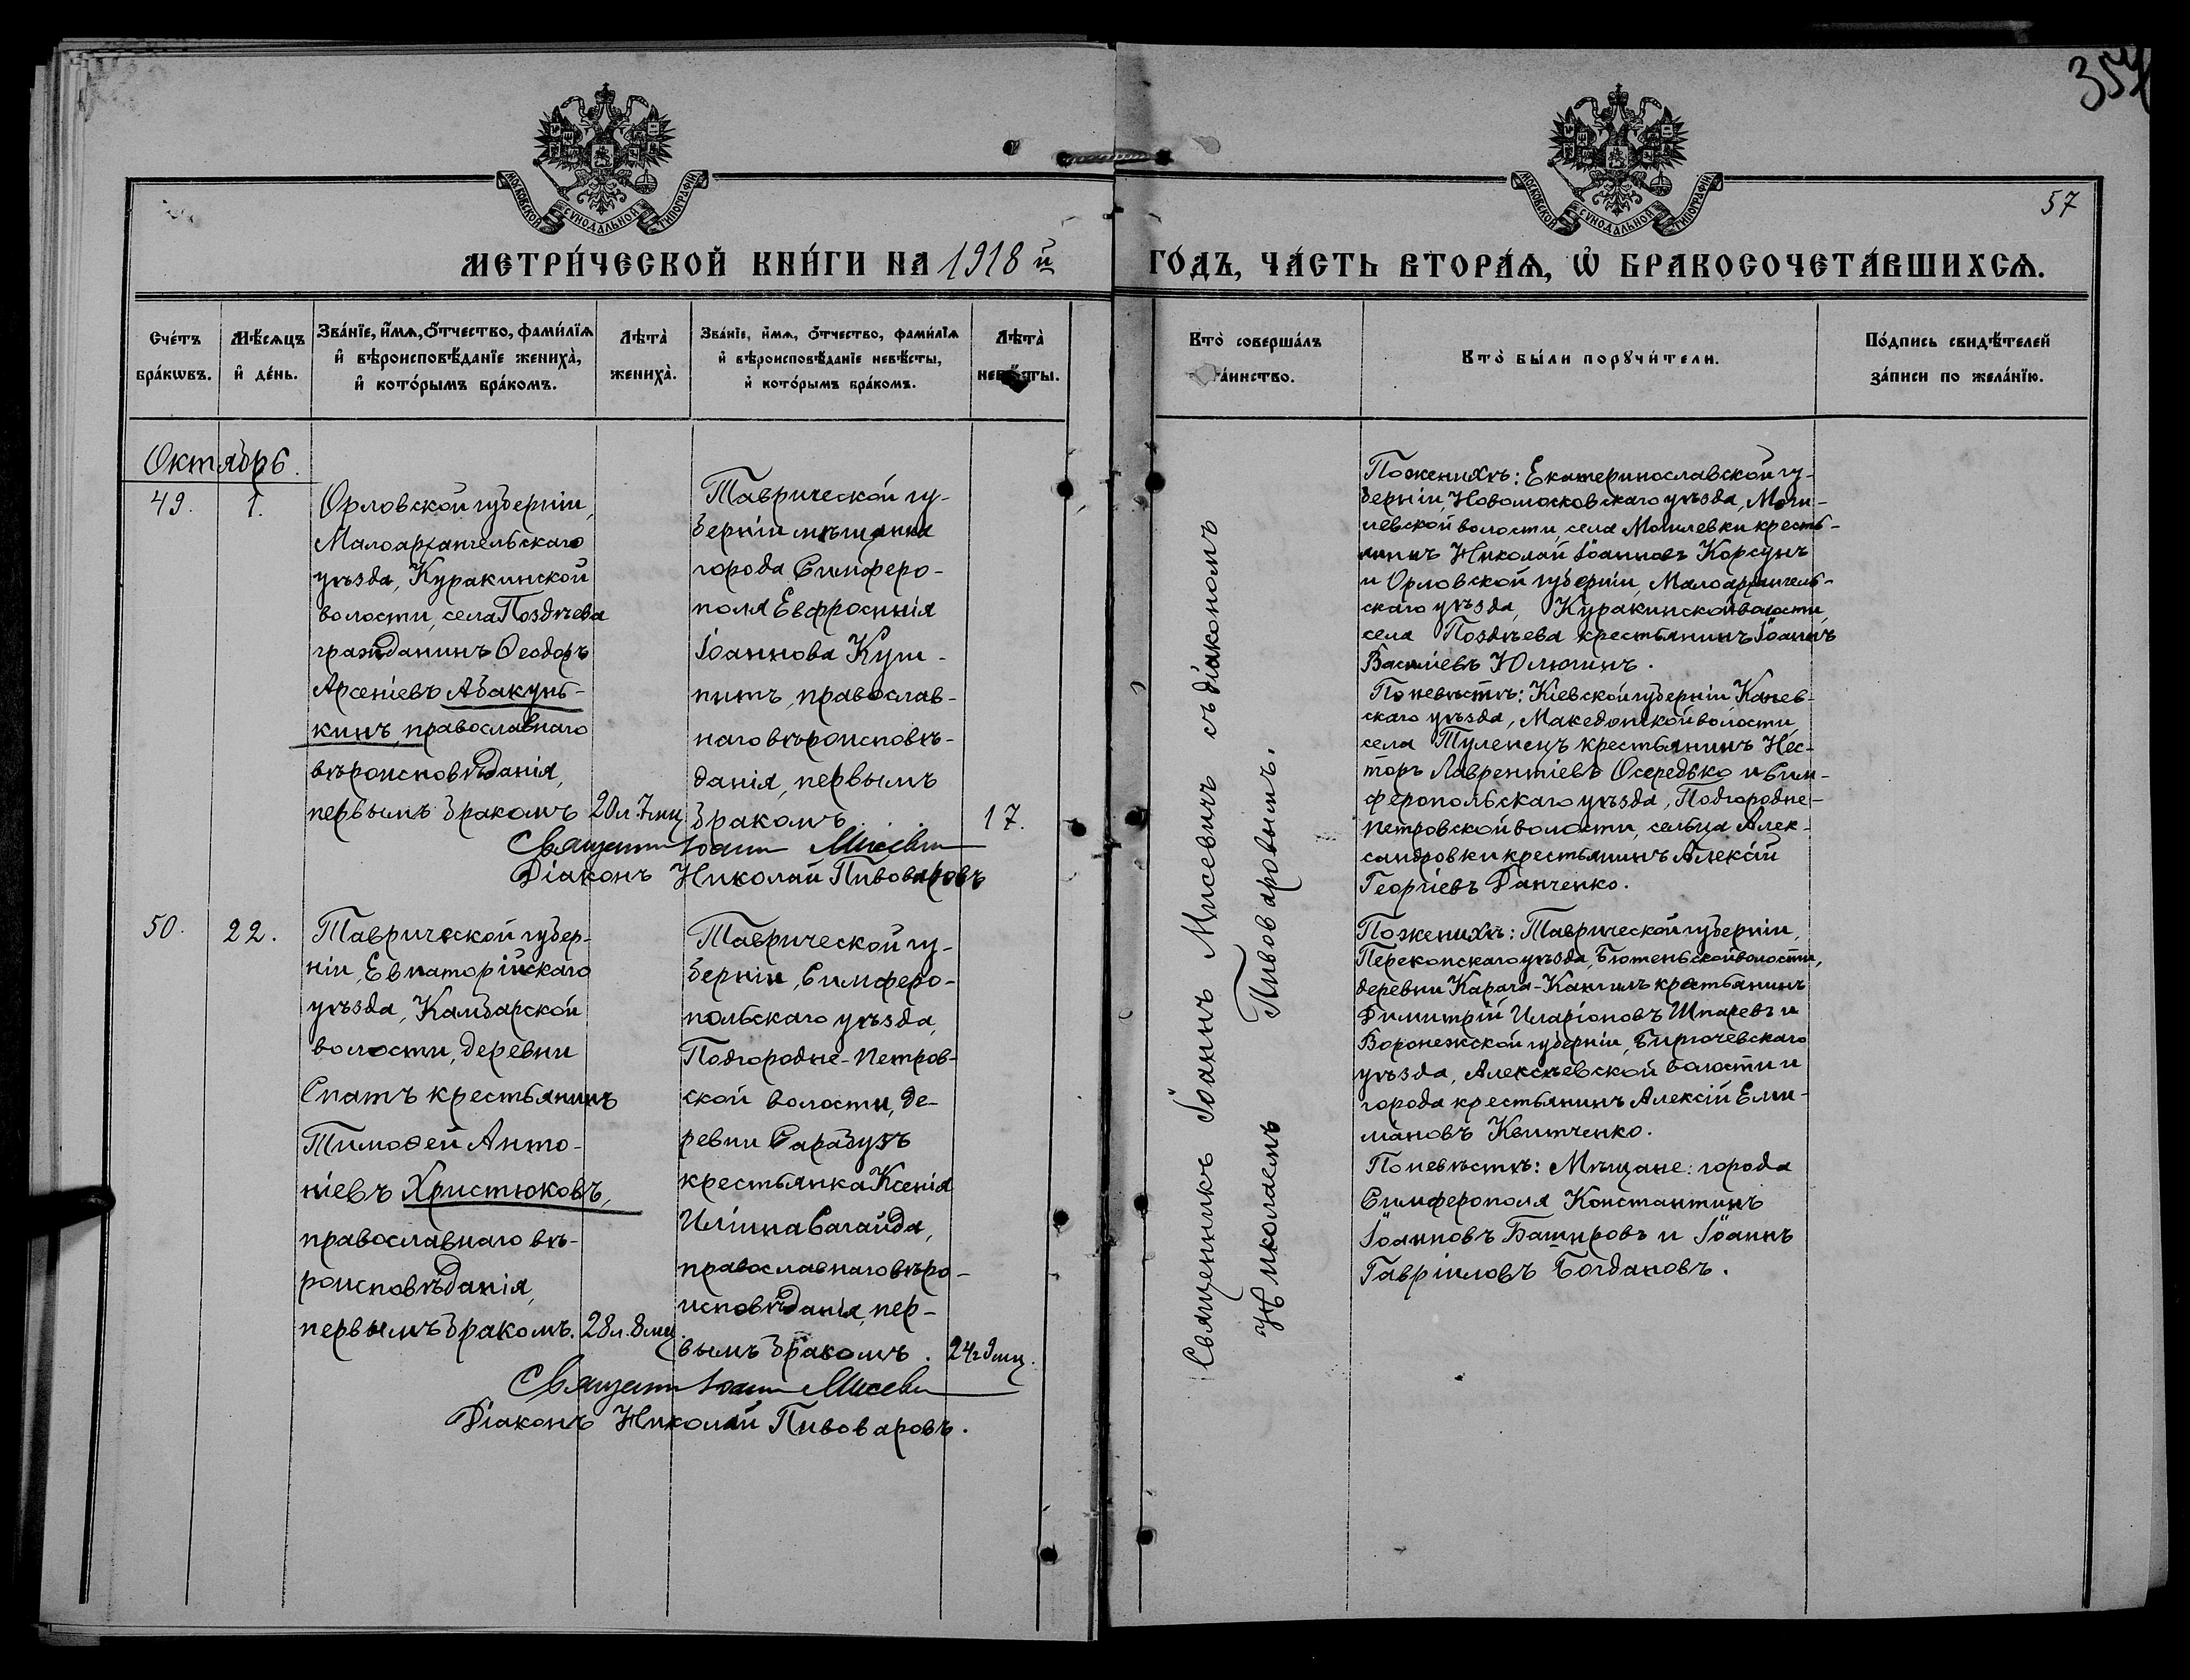 354
57
МОСКОВСКОЙ СѴНОДАЛЬНОЙ ТИПОГРАФІИ
МОСКОВСКОЙ СѴНОДАЛЬНОЙ ТИПОГРАФІИ
МЕТРИ́ЧЕСКОЙ КНИ́ГИ НА 1918 й
ГО́ДЪ, ЧА́СТЬ ВТОРА́Ѧ, Ѡ҆ БРАКОСОЧЕТА́ВШИХСѦ.
Сче́тъ
бра́кѡвъ.
Мѣ́сѧцъ
и҆ де́нь.
Зва́нїе, и҆́мѧ, ѻ҆́тчество, фами́лїѧ
и҆ вѣроисповѣ́данїе жениха̀,
и҆ кото́рымъ бра́комъ.
Лѣта̀
жениха̀.
Зва́нїе, и҆́мѧ, ѻ҆́тчество, фами́лїѧ
и҆ вѣроисповѣ́данїе невѣ́сты,
и҆ кото́рымъ бра́комъ.
Лѣта̀
невѣ́сты.
Кто̀ соверша́лъ
та́инство.
Кто̀ бы́ли порꙋчи́тели.
По́дпись свидѣ́телей
за́писи по жела́нїю.
Октябрь.
49.
1.
Орловской губерніи,
Малоархангельскаго
уѣзда, Куракинской
волости, села Позднѣева
гражданинъ Ѳеодоръ
Арсеніевъ Абакунь-
кинъ, православнаго
вѣроисповѣданія,
первымъ бракомъ
20 л. 7 мц
Таврической гу-
берніи мѣщанка
города Симферо-
поля Евфросинія
Іоаннова Куш-
ниръ, православ-
наго вѣроисповѣ-
данія, первымъ
бракомъ.
17.
Священникъ Іоаннъ Мисевичъ
Діаконъ Николай Пивоваровъ
Священникъ Іоаннъ Мисевичъ съ діакономъ
Николаемъ Пивоваровымъ.
По женихѣ: Екатеринославской гу-
берніи, Новомосковскаго уѣзда, Моги-
левской волости, села Могилевки кресть-
янинъ Николай Іоанновъ Корсунъ
и Орловской губерніи, Малоархангель-
скаго уѣзда, Куракинской волости,
села Позднѣева крестьянинъ Іоаннъ
Василіевъ Юлюгинъ.
По невѣстѣ: Кіевской губерніи Канев-
скаго уѣзда, Македонской волости,
села Тулинецъ крестьянинъ Нес-
торъ Лаврентіевъ Осередько и Сим-
феропольскаго уѣзда, Подгородне-
Петровской волости, сельца Алек-
сандровки крестьянинъ Алексій
Георгіевъ Данченко.
50.
22.
Таврической губер-
ніи, Евпаторійскаго
уѣзда, Камбарской
волости, деревни
Спатъ крестьянинъ
Тимоѳей Анто-
ніевъ Христюковъ,
православнаго вѣ-
роисповѣданія,
первымъ бракомъ.
28 л. 8 мц.
Таврической гу-
берніи, Симферо-
польскаго уѣзда,
Подгородне-Петров-
ской волости, де-
ревни Сарабузъ
крестьянка Ксенія
Иліина Сагайда,
православнаго вѣро-
исповѣданія, пер-
вымъ бракомъ.
24 г 9 мц.
Священникъ Іоаннъ Мисевичъ
Діаконъ Николай Пивоваровъ.
По женихѣ: Таврической губерніи,
Перекопскаго уѣзда, Бютеньской волости,
деревни Карача-Кангилъ крестьянинъ
Димитрій Иларіоновъ Шпаревъ и
Воронежской губерніи, Бирючевскаго
уѣзда, Алексѣевской волости и
города крестьянинъ Алексій Ели-
мановъ Квитченко.
По невѣстѣ: Мѣщане: города
Симферополя Константинъ
Іоанновъ Башировъ и Іоаннъ
Гавріиловъ Богдановъ.